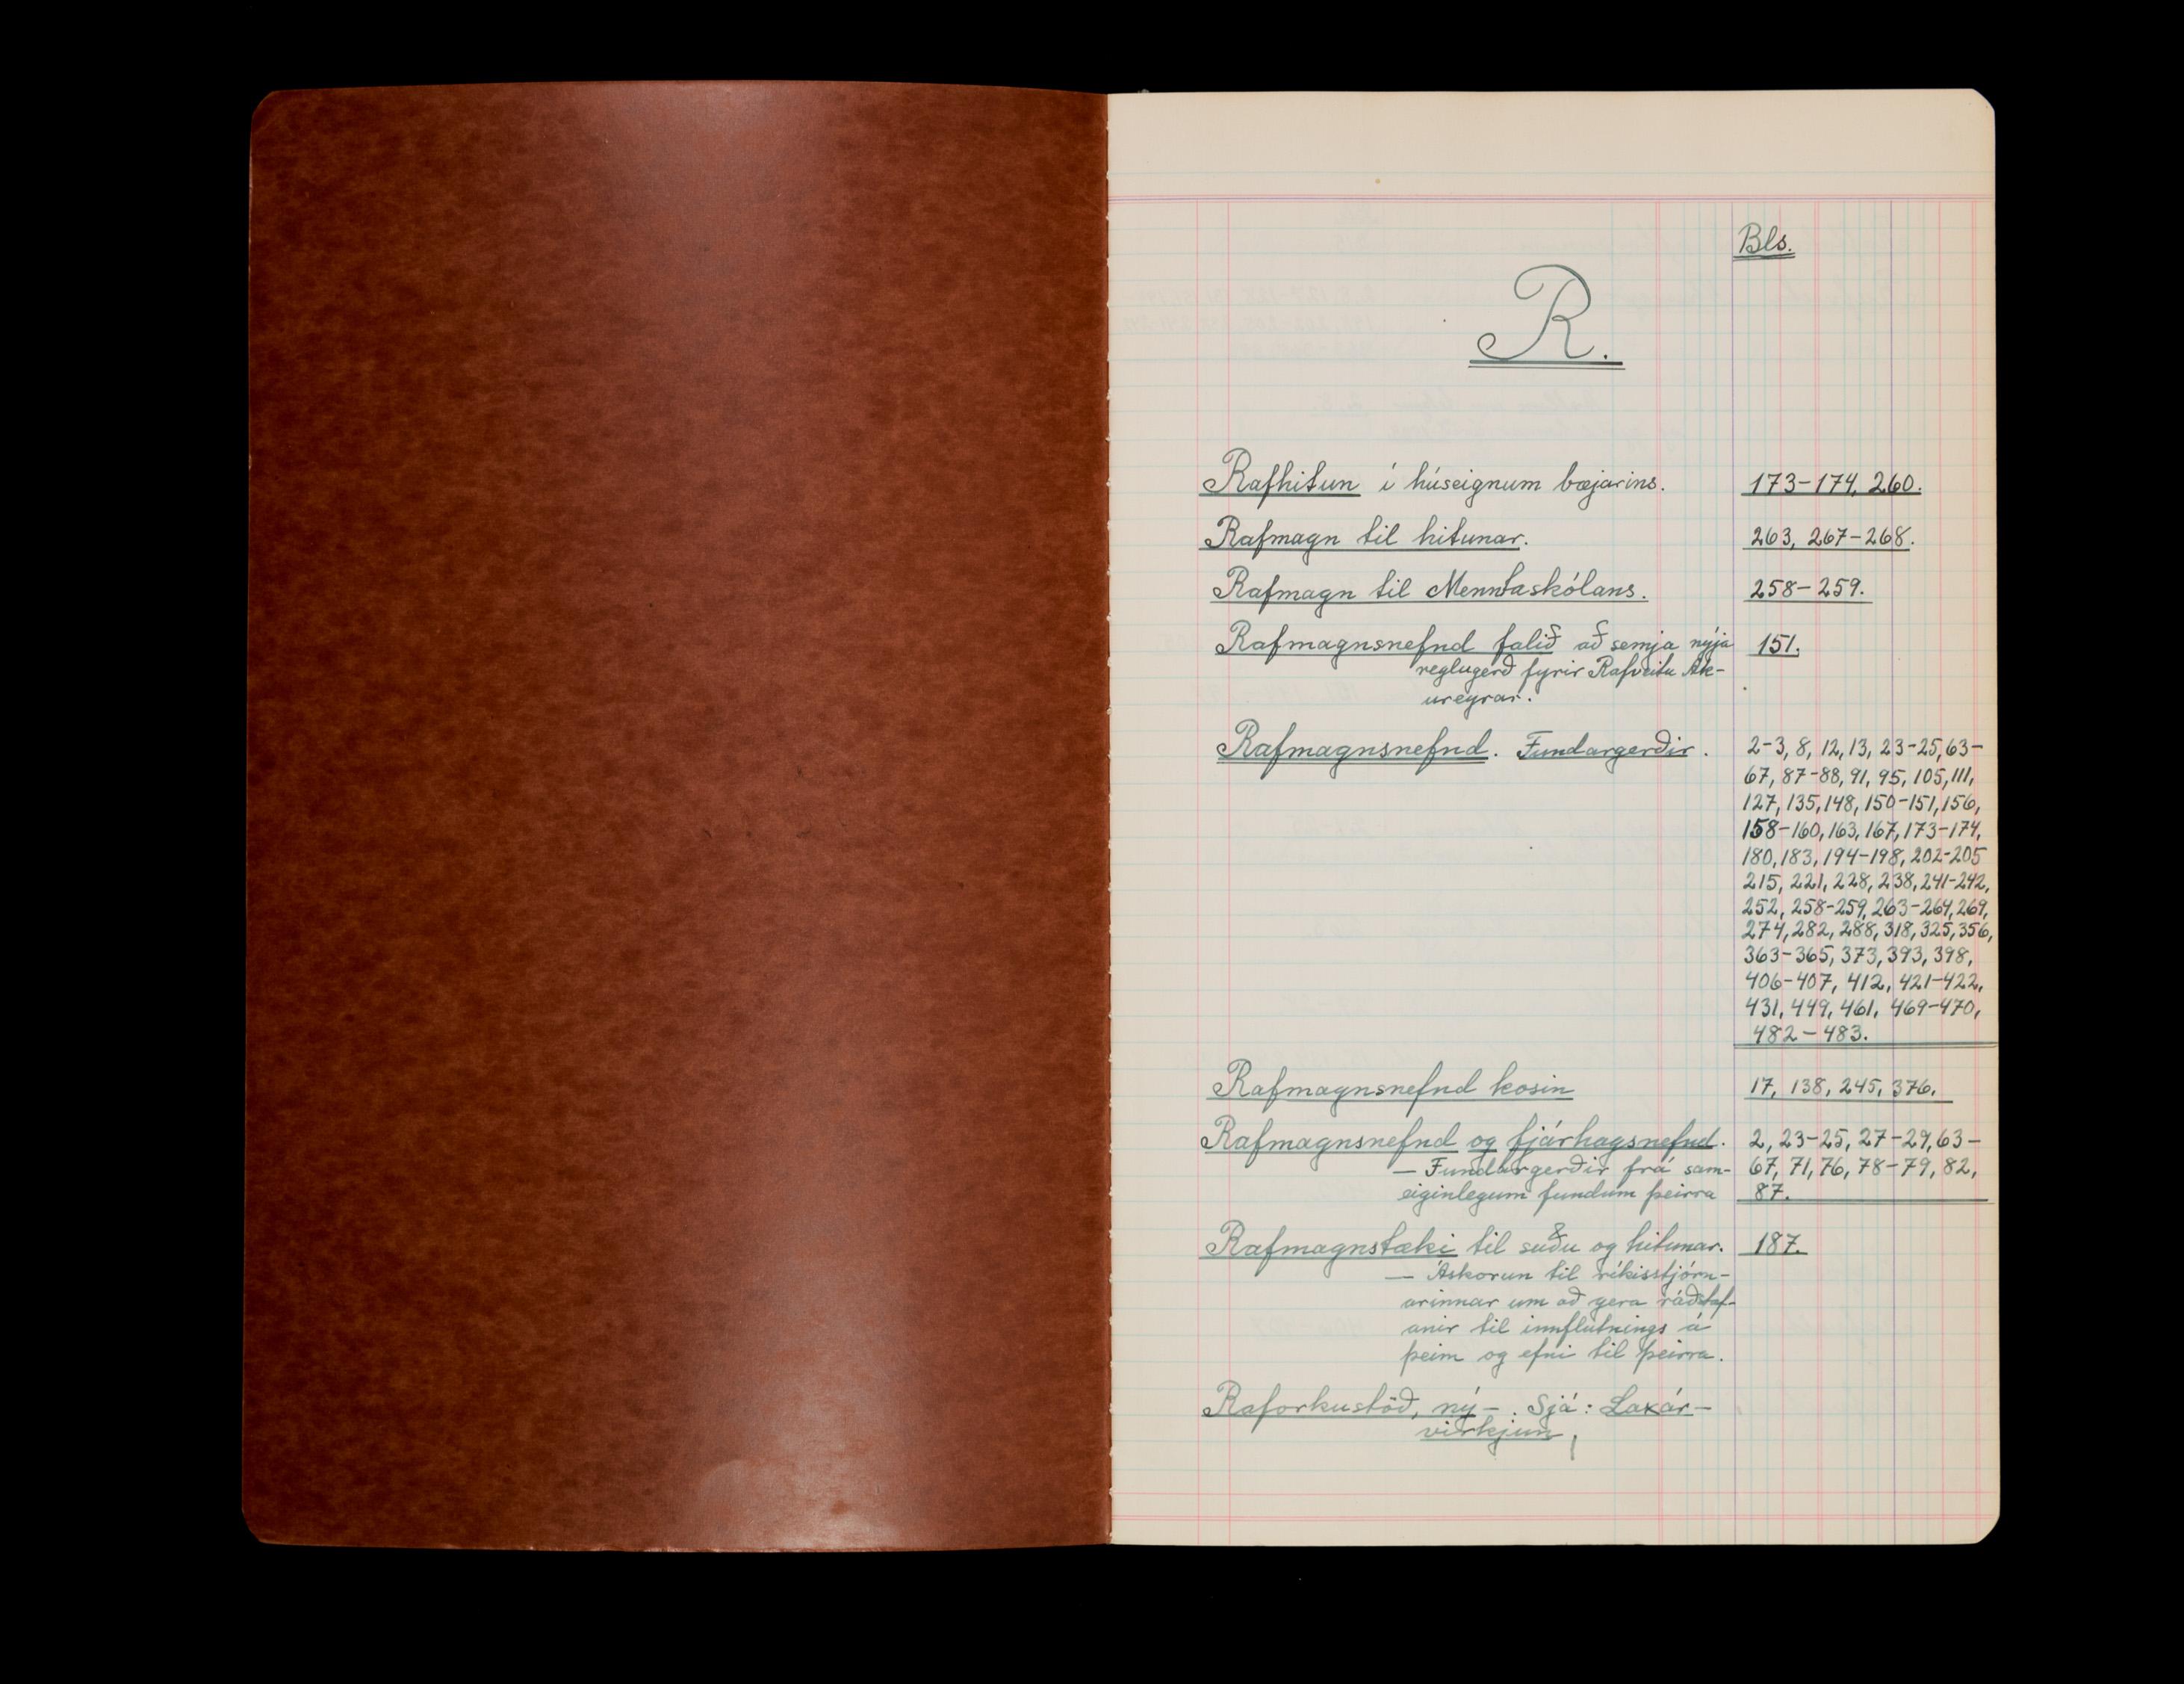 Bls.
R.
Rafhitun í húseignum bæjarins. 173-174, 260.
Rafmagn til hitunar. 263, 267-268.
Rafmagn til Menntaskólans. 258-259.
Rafmagnsnefnd falið að semja nýja 151.
reglugerð fyrir Rafveitu Ak-
ureyrar.
Rafmagnsnefnd. Fundargerðir. 2-3, 8, 12, 13, 23-25, 63-
67, 87-88, 91, 95, 105, 111,
127, 135, 148, 150-151, 156,
158-160, 163, 167, 173-174,
180, 183, 194-198, 202-205
215, 221, 228, 238, 241-242,
252, 258-259, 263-264, 269,
274, 282, 288, 318, 325, 356,
363-365, 373, 393, 398,
406-407, 412, 421-422,
431, 449, 461, 469-470,
482-483.
Rafmagnsnefnd kosin 17, 138, 245, 376.
Rafmagnsnefnd og fjárhagsnefnd. 2, 23-25, 27-29, 63-
— Fundargerðir frá sam- 67, 71, 76, 78-79, 82,
eiginlegum fundum þeirra 87.
Rafmagnstæki til suðu og hitunar. 187.
— Áskorun til ríkisstjórn-
arinnar um að gera ráðstaf-
anir til innflutnings á
þeim og efni til þeirra.
Raforkustöð, ný-. Sjá: Laxár-
virkjun,